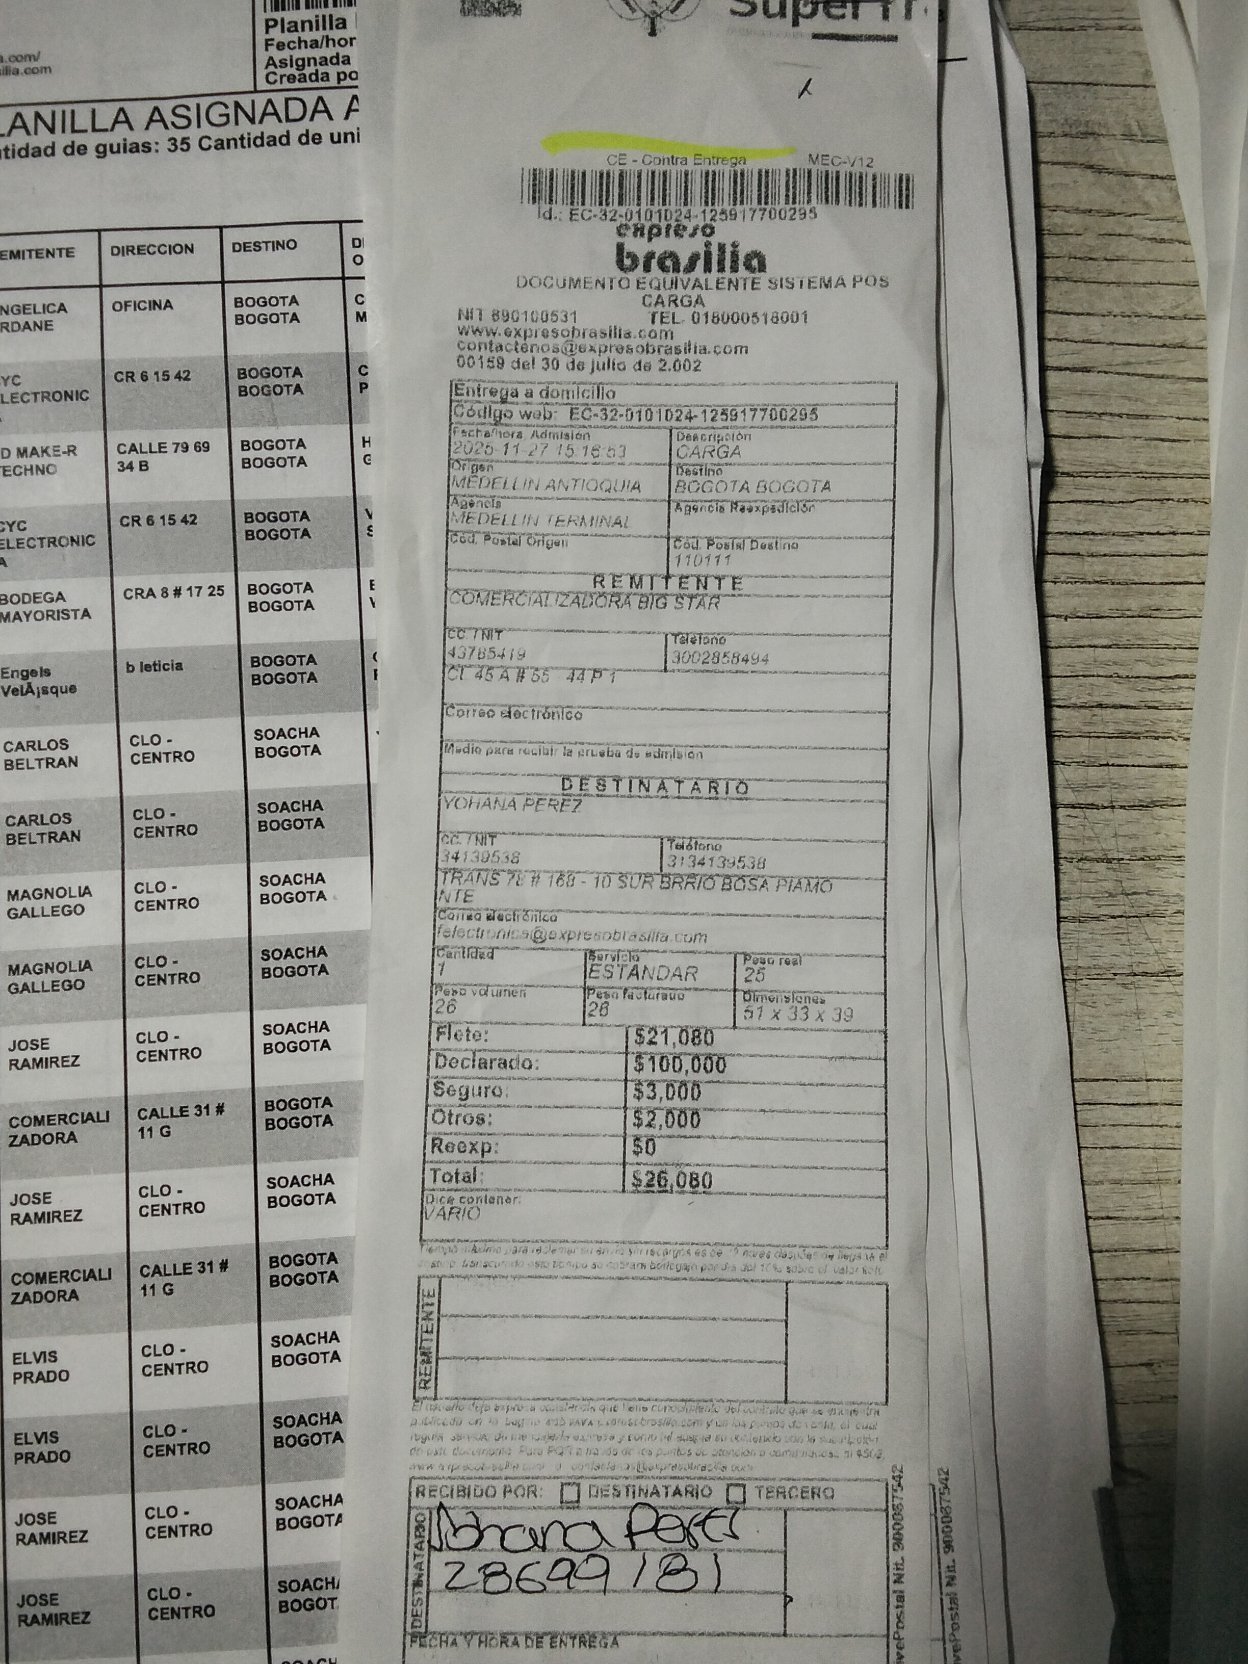 a.com/
silia.com
Planilla
Fecha/hor
Asignada
Creada po
LANILLA ASIGNADA A
tidad de guias: 35 Cantidad de uni
EMITENTE DIRECCION DESTINO D
O
NGELICA
RDANE OFICINA BOGOTA
BOGOTA C
M
YC
LECTRONIC
A CR 6 15 42 BOGOTA
BOGOTA C
P
D MAKE-R
TECHNO CALLE 79 69
34 B BOGOTA
BOGOTA H
G
CYC
ELECTRONIC
A CR 6 15 42 BOGOTA
BOGOTA V
S
BODEGA
MAYORISTA CRA 8 # 17 25 BOGOTA
BOGOTA E
V
Engels
VelÃ¡sque b leticia BOGOTA
BOGOTA
CARLOS
BELTRAN CLO -
CENTRO SOACHA
BOGOTA
CARLOS
BELTRAN CLO -
CENTRO SOACHA
BOGOTA
MAGNOLIA
GALLEGO CLO -
CENTRO SOACHA
BOGOTA
MAGNOLIA
GALLEGO CLO -
CENTRO SOACHA
BOGOTA
JOSE
RAMIREZ CLO -
CENTRO SOACHA
BOGOTA
COMERCIALI
ZADORA CALLE 31 #
11 G BOGOTA
BOGOTA
JOSE
RAMIREZ CLO -
CENTRO SOACHA
BOGOTA
COMERCIALI
ZADORA CALLE 31 #
11 G BOGOTA
BOGOTA
ELVIS
PRADO CLO -
CENTRO SOACHA
BOGOTA
ELVIS
PRADO CLO -
CENTRO SOACHA
BOGOTA
JOSE
RAMIREZ CLO -
CENTRO SOACHA
BOGOTA
JOSE
RAMIREZ CLO -
CENTRO SOACH
BOGOT
SOACH
SuperTr
CE - Contra Entrega MEC-V12
Id.: EC-32-0101024-125917700295
expreso
brasilia
DOCUMENTO EQUIVALENTE SISTEMA POS
CARGA
NIT 890100531 TEL. 018000518001
www.expresobrasilia.com
contactenos@expresobrasilia.com
00159 del 30 de julio de 2.002
Entrega a domicilio
Código web: EC-32-0101024-125917700295
Fecha/hora, Admisión Descripción
2025-11-27 15:16:53 CARGA
Origen Destino
MEDELLIN ANTIOQUIA BOGOTA BOGOTA
Agencia Agencia Reexpedición
MEDELLIN TERMINAL
Cód. Postal Origen Cód. Postal Destino
110111
REMITENTE
COMERCIALIZADORA BIG STAR
CC. / NIT Teléfono
43785419 3002858494
CL 45 A # 55 - 44 P 1
Correo electrónico
Medio para recibir la prueba de admisión
DESTINATARIO
YOHANA PEREZ
CC. / NIT Teléfono
34139538 3134139538
TRANS 78 # 168 - 10 SUR BRRIO BOSA PIAMO
NTE
Correo electrónico
felectronica@expresobrasilia.com
Cantidad Servicio Peso real
1 ESTANDAR 25
Peso volumen Peso facturado Dimensiones
26 26 51 x 33 x 39
Flete: $21,080
Declarado: $100,000
Seguro: $3,000
Otros: $2,000
Reexp: $0
Total: $26,080
Dice contener:
VARIO
REMITENTE
RECIBIDO POR: DESTINATARIO TERCERO
DESTINATARIO
Yohana Perez
28699181
FECHA Y HORA DE ENTREGA
vePostal Nit. 900087542
vePostal Nit. 900087542